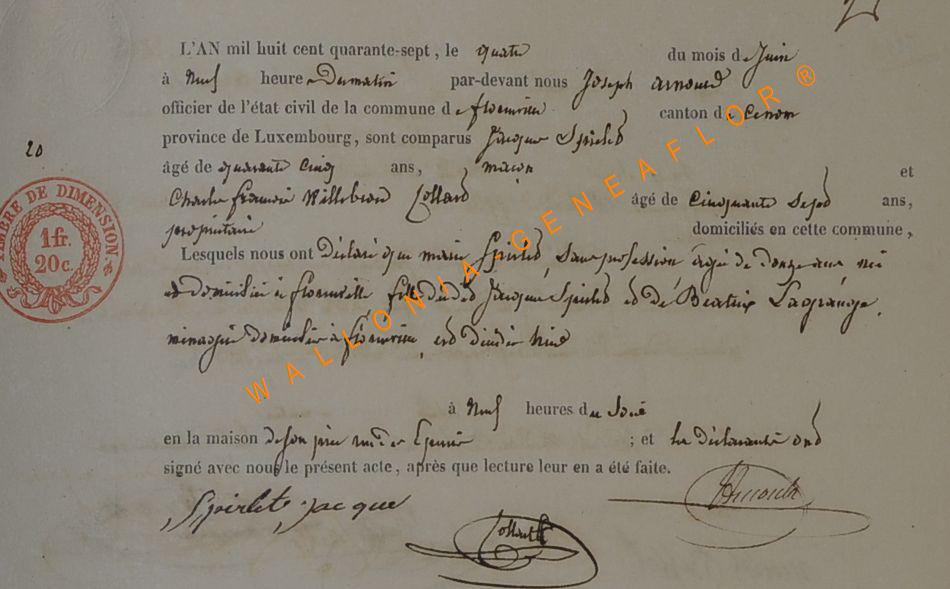 20
TIMBRE DE DIMENSION.
1 fr.
20 c.
L'AN mil huit cent quarante-sept, le quatre du mois de Juin
à Neuf heures Du matin par-devant nous Joseph arnould
officier de l'état civil de la commune de florenville canton de
province de Luxembourg, sont comparus Jacques Spirlet
âgé de quarante cinq ans, maçon et
Charles françois Willebrord Collard âgé de Cinquante Sept ans,
propriétaire domiciliés en cette commune,
Lesquels nous ont Déclaré que marie Spirlet, Sans profession agée de Douze ans, née
et domiciliée à florenville, fille dudit Jacques Spirlet et de Béatrix Lagrange,
menagère domiciliée à florenville, est décédée hier
à Neuf heures du Soir
en la maison de son père ; et les déclarants ont
signé avec nous le présent acte, après que lecture leur en a été faite.
Spirlet jacque
Collard
Arnould
WALLONIA GENEAFLOR ®